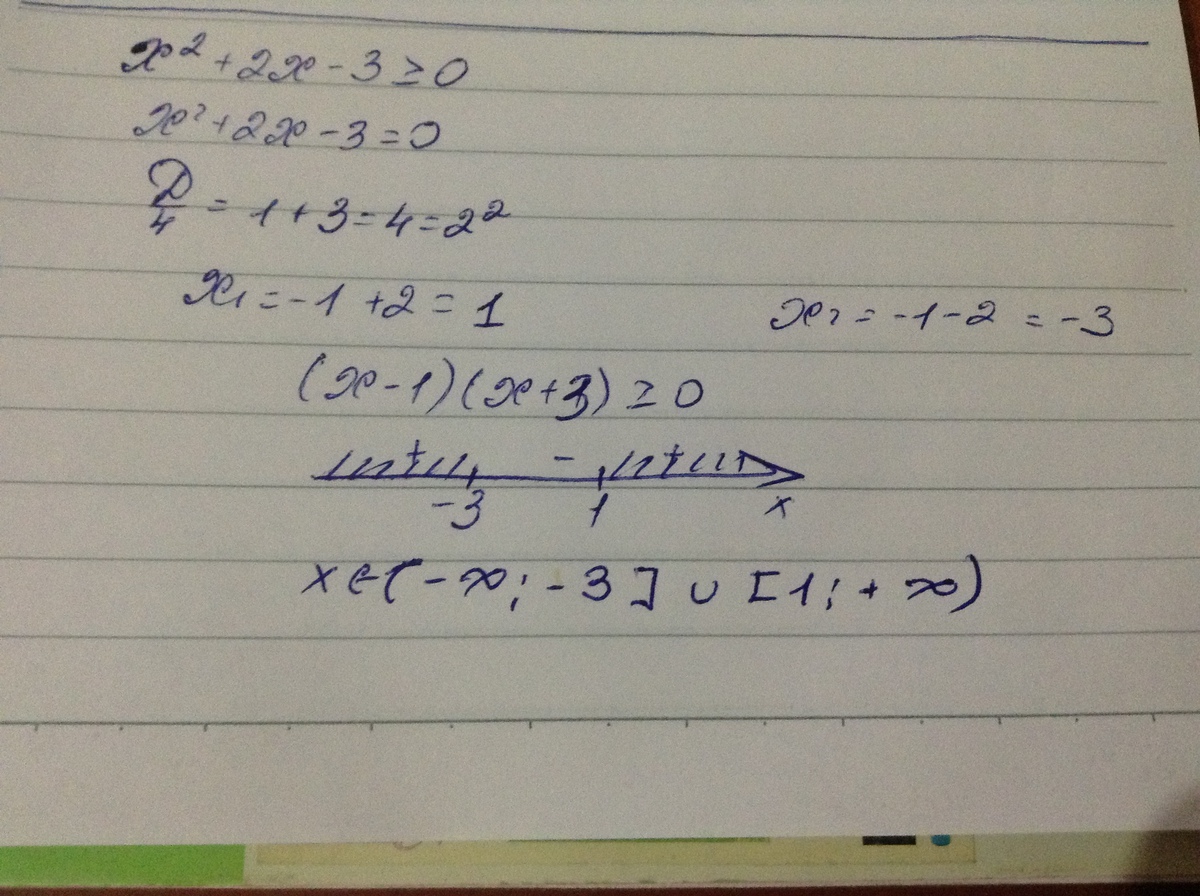 x² + 2x - 3 ≥ 0
x² + 2x - 3 = 0
D/4 = 1 + 3 = 4 = 2²
x₁ = -1 + 2 = 1 x₂ = -1 - 2 = -3
(x - 1)(x + 3) ≥ 0
+ - +
-3 1 x
x ∈ (-∞; -3] ∪ [1; +∞)